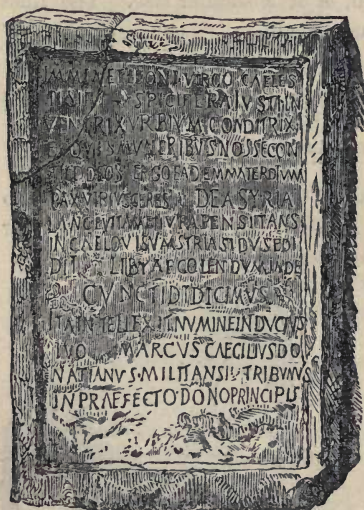 IMMINET LEONI VIRGO CAELES
SPICIFERA IVSTI IN
VENTRIX VRBIVM CONDITRIX
EX QVIS MVNERIBVS NOSSE CON
DEOS ERGO EADEM MATER DIVVM
PAX VIRTVS CERES DEA SYRIA
LANCE VITAM ET IVRA PENSITANS
IN CAELO VISVM SYRIA SIDVS EDI
DIT LIBYAE COLENDVM INDE
CVNCTI DIDICIMVS
ITA INTELLEXIT NVMINE INDVCTVS
TVO MARCVS CAECILIVS DO
NATIANVS·MILITANS TRIBVNVS
IN PRAEFECTO·DONO PRINCIPIS